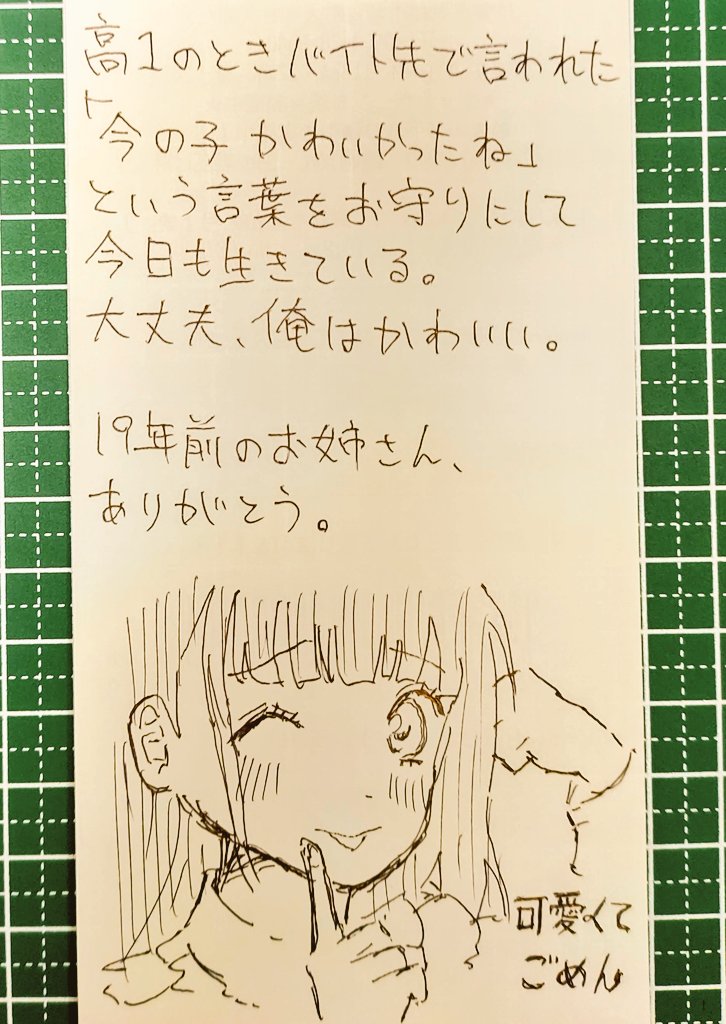 高1のときバイト先で言われた
「今の子かわいかったね」
という言葉をお守りにして
今日も生きている。
大丈夫、俺はかわいい。
19年前のお姉さん、
ありがとう。
可愛くて
ごめん